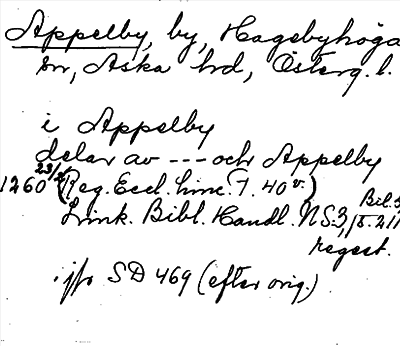 Appelby, by, Hagebyhöga
sn, Aska hd, Österg. l.
i Appelby
delar av --- och Appelby
1260 23/2 (Reg. Eccl. Linc. f. 40 v.)
Link. Bibl. Handl. NS 3, Bil. 5, s. 211
regest.
jfr SD 469 (efter orig.)